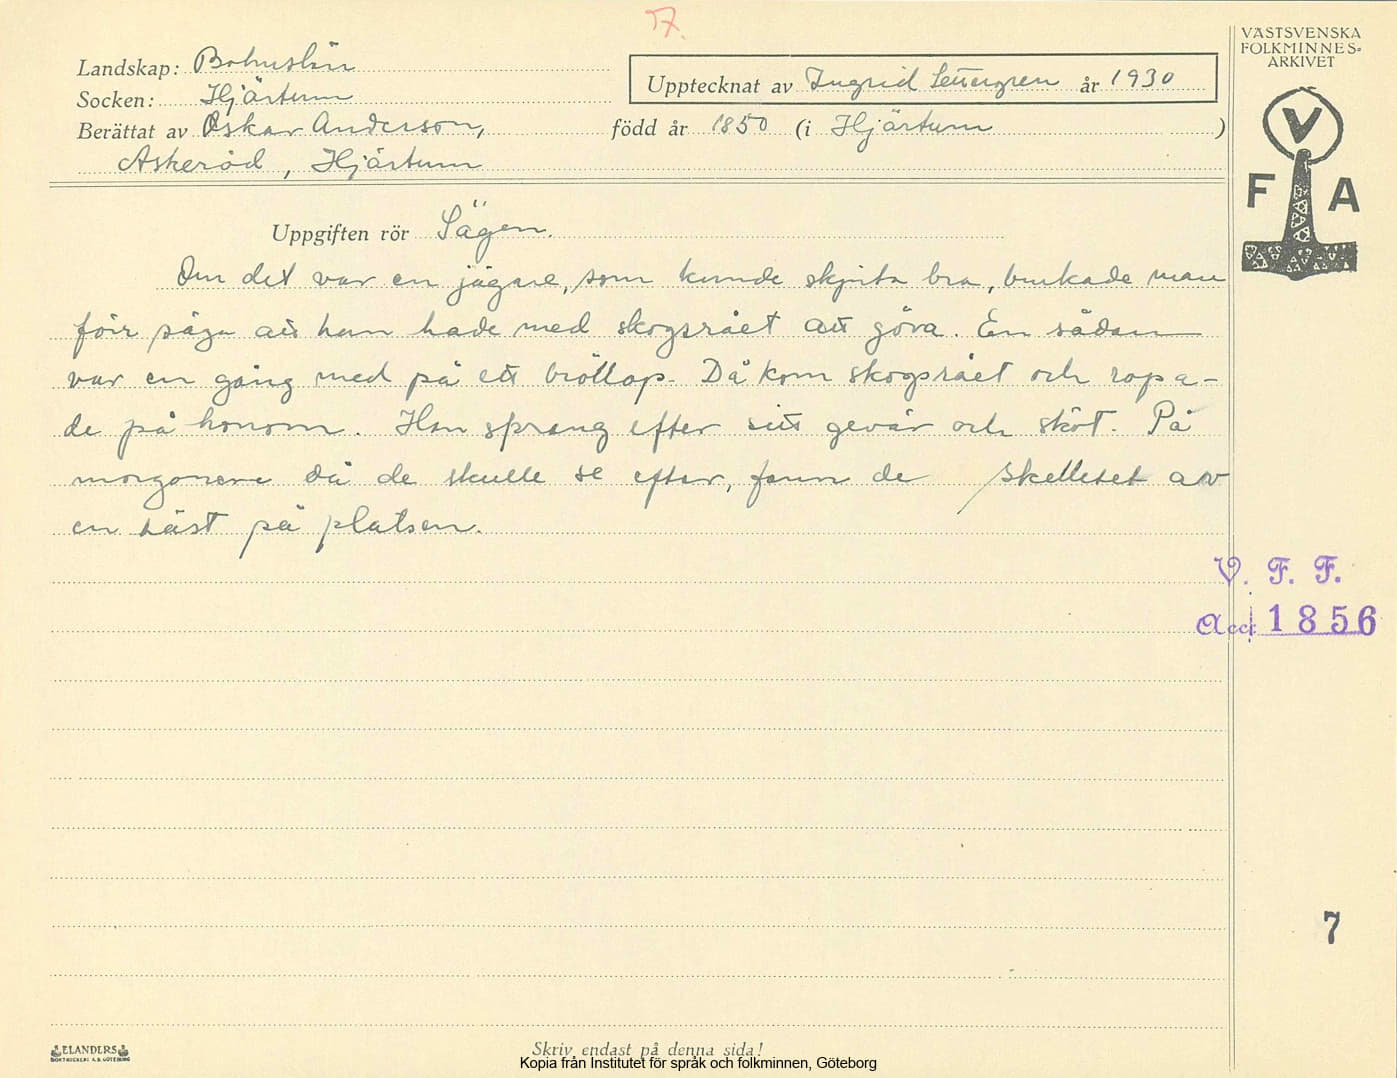 7.
VÄSTSVENSKA
FOLKMINNES-
ARKIVET
Landskap: Bohuslän
Socken: Hjärtum
Upptecknat av Ingrid Settergren år 1930
Berättat av Oskar Anderson, född år 1850 (i Hjärtum )
Askeröd, Hjärtum
V
F A
Uppgiften rör Sägen.
Om det var en jägare, som kunde skjuta bra, brukade man
förr säga att han hade med skogsrået att göra. En sådan
var en gång med på ett bröllop. Då kom skogsrået och ropa-
de på honom. Han sprang efter sitt gevär och sköt. På
morgonen då de skulle se efter, fann de skelletet av
en häst på platsen.
V. F. F.
Acc: 1856
7
ELANDERS
BOKTRYCKERI A.B. GÖTEBORG
Skriv endast på denna sida!
Kopia från Institutet för språk och folkminnen, Göteborg